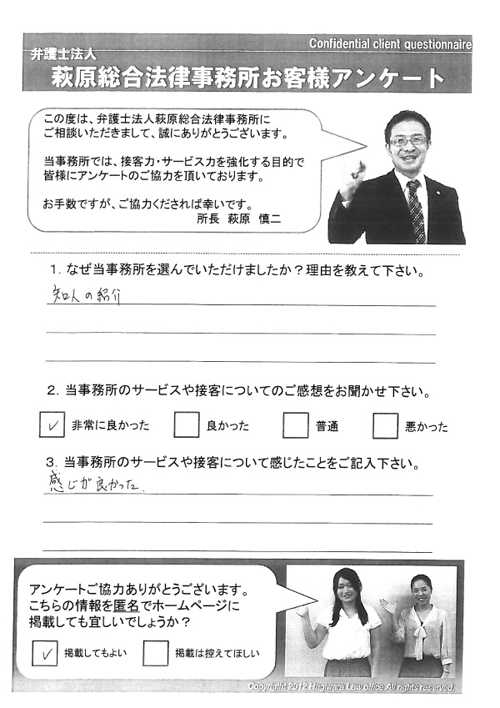 Confidential client questionnaire
弁護士法人
萩原総合法律事務所お客様アンケート
この度は、弁護士法人萩原総合法律事務所に
ご相談いただきまして、誠にありがとうございます。
当事務所では、接客力・サービス力を強化する目的で
皆様にアンケートのご協力を頂いております。
お手数ですが、ご協力くだされば幸いです。
所長 萩原 慎二
1.なぜ当事務所を選んでいただけましたか？理由を教えて下さい。
知人の紹介
2.当事務所のサービスや接客についてのご感想をお聞かせ下さい。
✓ 非常に良かった 良かった 普通 悪かった
3.当事務所のサービスや接客について感じたことをご記入下さい。
感じが良かった.
アンケートご協力ありがとうございます。
こちらの情報を匿名でホームページに
掲載しても宜しいでしょうか？
✓ 掲載してもよい 掲載は控えてほしい
Copyright 2012 Hagiwara Law office All rights reserved.